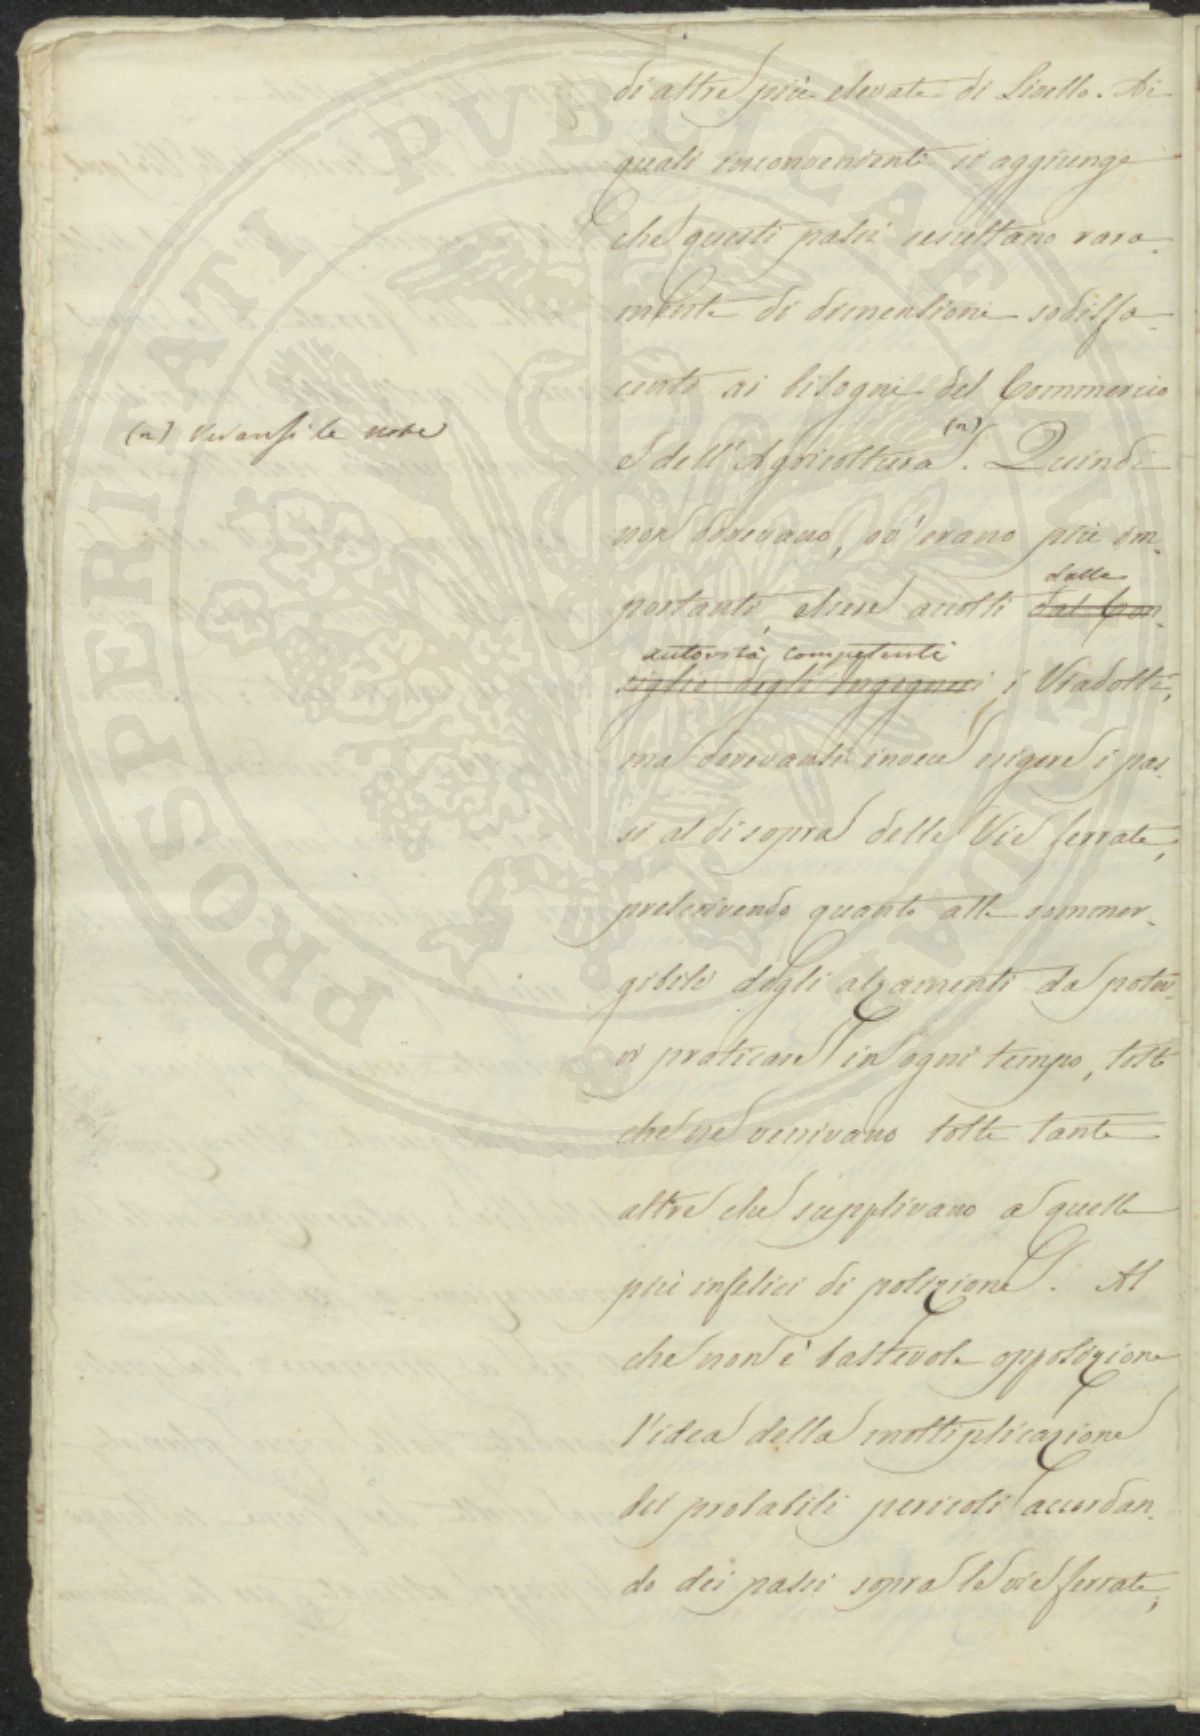 di altre più elevate di Livello. Ai
quali inconvenienti si aggiunge
che questi passi resultano rara-
mente di dimensioni sodisfa-
centi ai bisogni del Commercio
(n) Vedansi le note
e dell'Agricoltura (n). Quindi
non dovevano, ov'erano più im-
portanti, essere accolti dal Con-
dalle
siglio degli Ingegneri i Viadotti,
autorità competenti
ma dovevansi invece erigere i pas-
si al di sopra delle Vie ferrate,
prescrivendo quanto alle sommer-
gibili degli alzamenti da poter-
si praticare in ogni tempo, tosto
che ne venivano tolte tante
altre che supplivano a quelle
più infelici di posizione. Al
che non è bastevole opposizione
l'idea della moltiplicazione
dei probabili pericoli accordan-
do dei passi sopra le vie ferrate,
PROSPERITATI PUBLICAE AUGENDAE